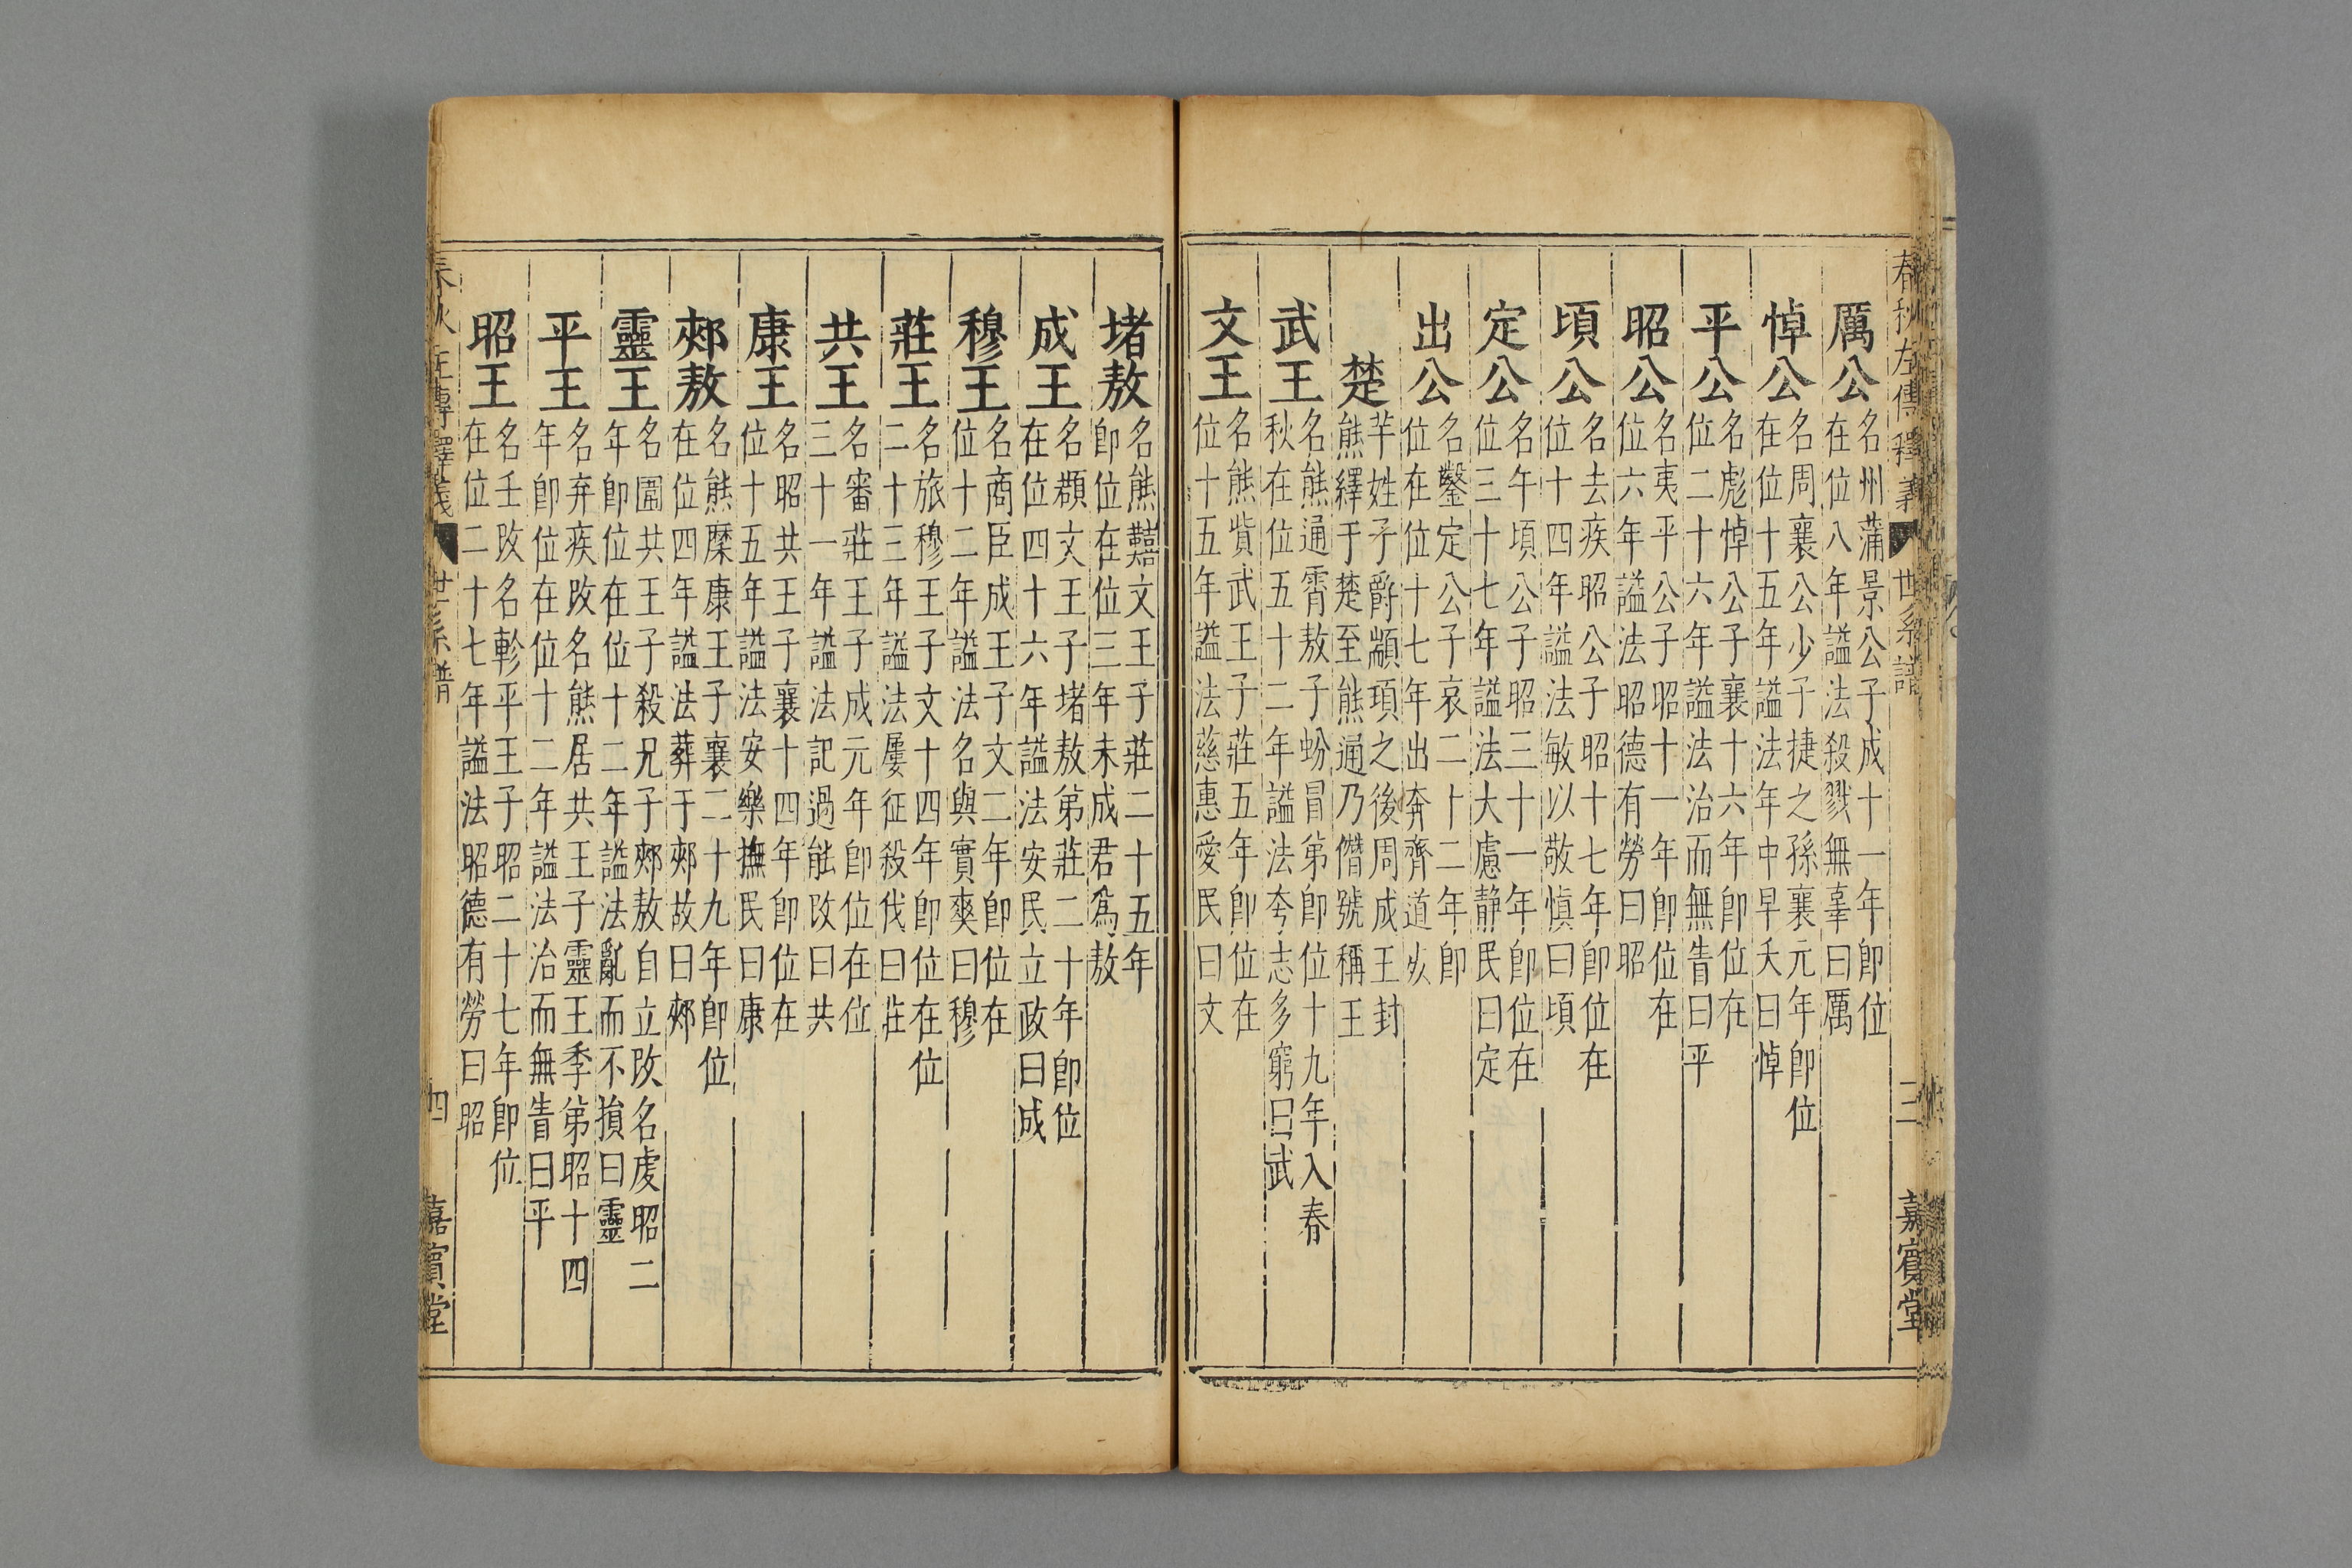 春秋左傳釋義 世系譜 三 嘉賓堂
厲公 名州蒲景公子成十一年即位
在位八年謚法殺戮無辜曰厲
悼公 名周襄公少子捷之孫襄元年即位
在位十五年謚法年中早夭曰悼
平公 名彪悼公子襄十六年即位在
位二十六年謚法治而無眚曰平
昭公 名夷平公子昭十一年即位在
位六年謚法昭德有勞曰昭
頃公 名去疾昭公子昭十七年即位在
位十四年謚法敏以敬慎曰頃
定公 名午頃公子昭三十一年即位在
位三十七年謚法大慮静民曰定
出公 名鑿定公子哀二十二年即
位在位十七年出奔齊道死
楚 芈姓子爵顓頊之後周成王封
熊繹于楚至熊通乃僭號稱王
武王 名熊通霄敖子蚡冒弟即位十九年入春
秋在位五十二年謚法夸志多窮曰武
文王 名熊貲武王子莊五年即位在
位十五年謚法慈惠愛民曰文
堵敖 名熊囏文王子莊二十五年
即位在位三年未成君爲敖
成王 名頵文王子堵敖弟莊二十年即位
在位四十六年謚法安民立政曰成
穆王 名商臣成王子文二年即位在
位十二年謚法名與實爽曰穆
莊王 名旅穆王子文十四年即位在位
二十三年謚法屢征殺伐曰莊
共王 名審莊王子成元年即位在位
三十一年謚法記過能改曰共
康王 名昭共王子襄十四年即位在
位十五年謚法安樂撫民曰康
郟敖 名熊麇康王子襄二十九年即位
在位四年謚法葬于郟故曰郟
靈王 名圍共王子殺兄子郟敖自立改名虔昭二
年即位在位十二年謚法亂而不損曰靈
平王 名弃疾改名熊居共王子靈王季弟昭十四
年即位在位十二年謚法治而無眚曰平
昭王 名壬改名軫平王子昭二十七年即位
在位二十七年謚法昭德有勞曰昭
春秋左傳釋義 世系譜 四 嘉賓堂